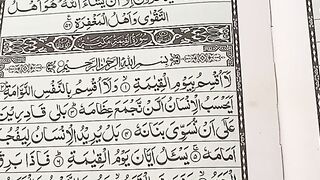 يَذْكُرُوْنَ اِلَّآ اَنْ يَّشَآءَ اللّٰهُ هُوَ اَهْلُ
التَّقْوٰى وَاَهْلُ الْمَغْفِرَةِ
سُوْرَةُ الْقِيٰمَةِ مَكِّيَّةٌ
بِسْمِ اللّٰهِ الرَّحْمٰنِ الرَّحِيْمِ
لَآ اُقْسِمُ بِيَوْمِ الْقِيٰمَةِ وَلَآ اُقْسِمُ بِالنَّفْسِ اللَّوَّامَةِ
اَيَحْسَبُ الْاِنْسَانُ اَلَّنْ نَّجْمَعَ عِظَامَهٗ بَلٰى قٰدِرِيْنَ
عَلٰٓى اَنْ نُّسَوِّيَ بَنَانَهٗ بَلْ يُرِيْدُ الْاِنْسَانُ لِيَفْجُرَ
اَمَامَهٗ يَسْئَلُ اَيَّانَ يَوْمُ الْقِيٰمَةِ فَاِذَا بَرِقَ